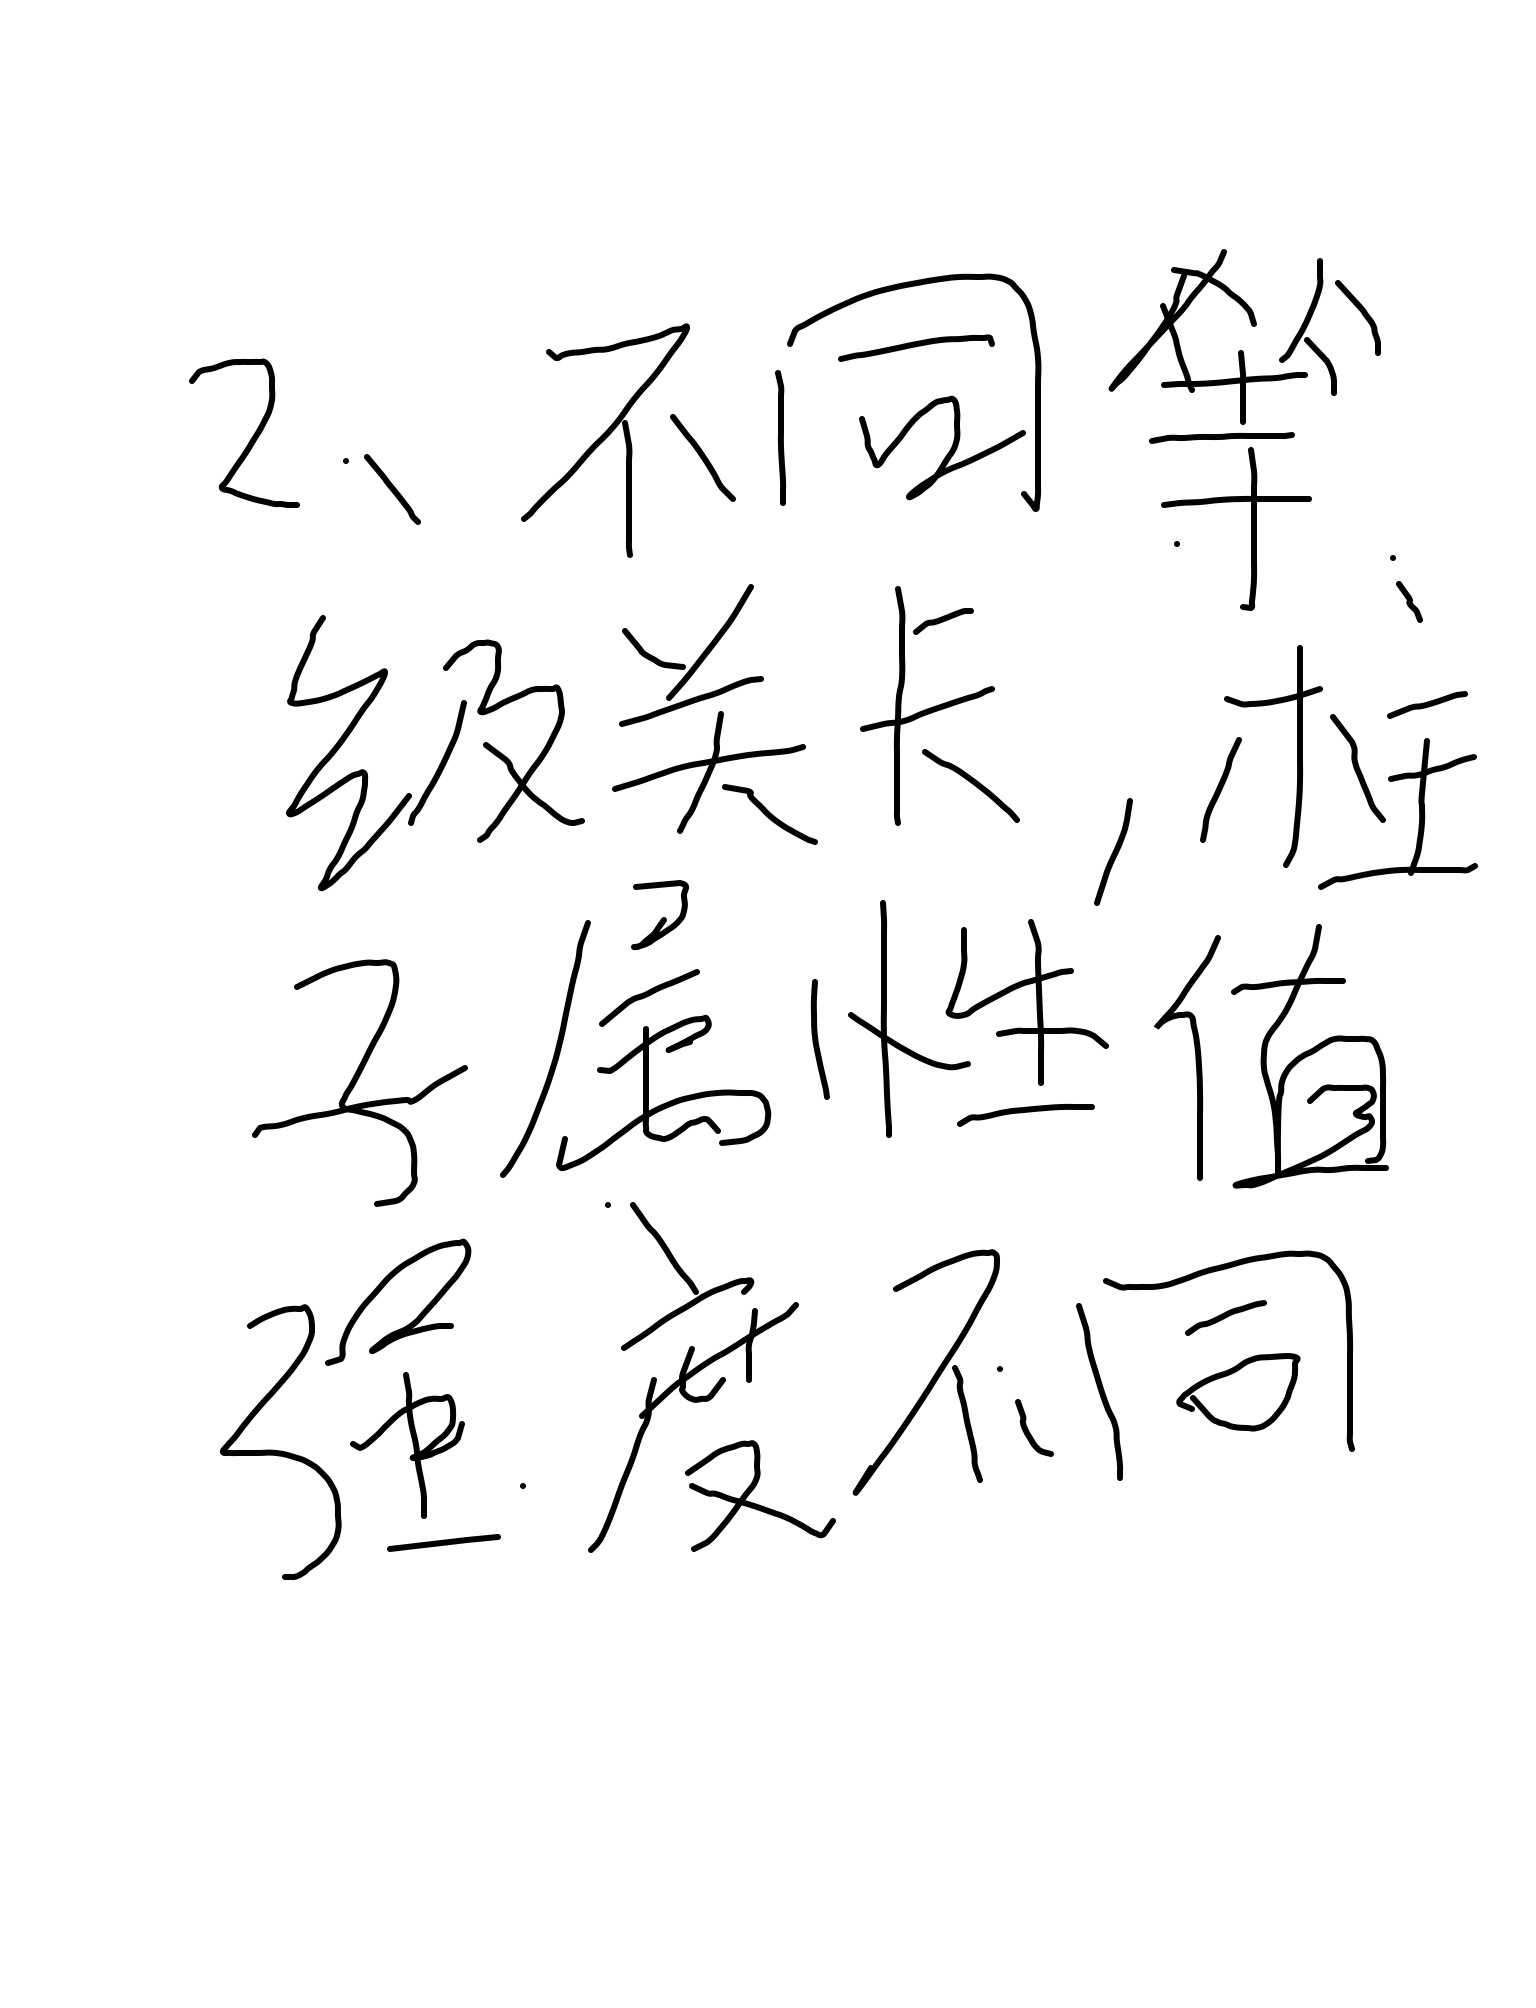 2、不同等
级关卡,柱
子属性值
强度不同